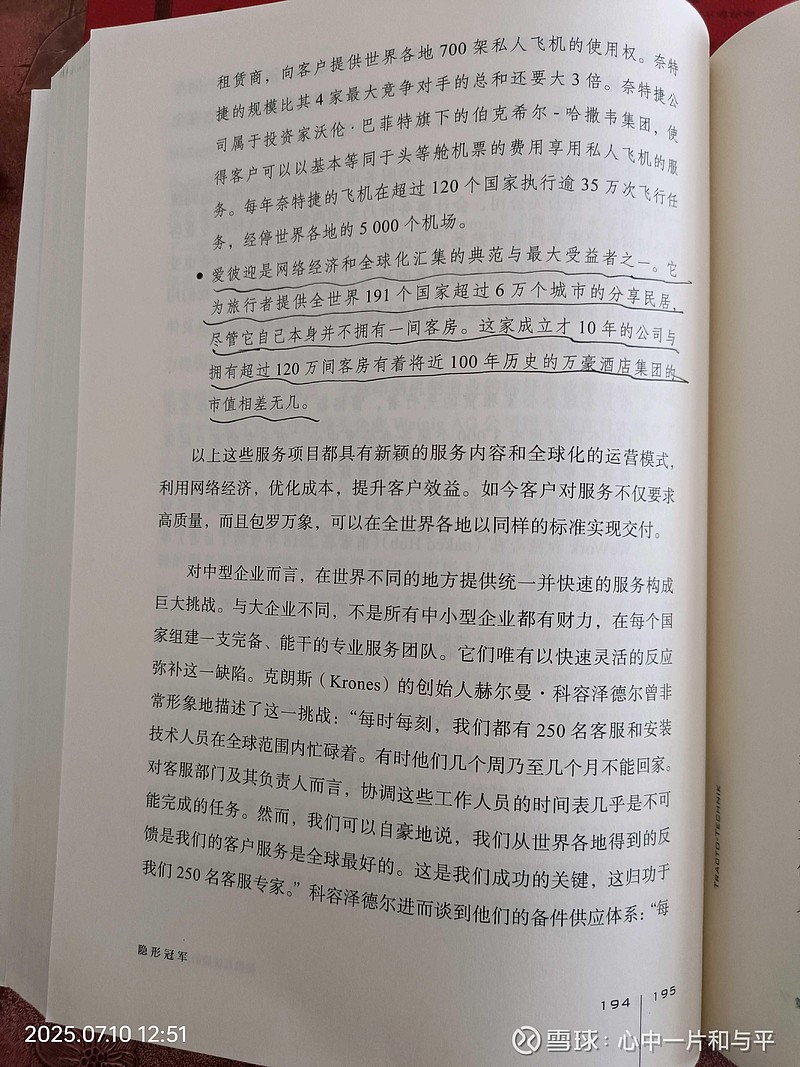 租赁商，向客户提供世界各地 700 架私人飞机的使用权。奈特
捷的规模比其 4 家最大竞争对手的总和还要大 3 倍。奈特捷公
司属于投资家沃伦·巴菲特旗下的伯克希尔-哈撒韦集团，使
得客户可以以基本等同于头等舱机票的费用享用私人飞机的服
务。每年奈特捷的飞机在超过 120 个国家执行逾 35 万次飞行任
务，经停世界各地的 5 000 个机场。
• 爱彼迎是网络经济和全球化汇集的典范与最大受益者之一。它
为旅行者提供全世界 191 个国家超过 6 万个城市的分享民居，
尽管它自己本身并不拥有一间客房。这家成立才 10 年的公司与
拥有超过 120 万间客房有着将近 100 年历史的万豪酒店集团的
市值相差无几。
以上这些服务项目都具有新颖的服务内容和全球化的运营模式，
利用网络经济，优化成本，提升客户效益。如今客户对服务不仅要求
高质量，而且包罗万象，可以在全世界各地以同样的标准实现交付。
对中型企业而言，在世界不同的地方提供统一并快速的服务构成
巨大挑战。与大企业不同，不是所有中小型企业都有财力，在每个国
家组建一支完备、能干的专业服务团队。它们唯有以快速灵活的反应
弥补这一缺陷。克朗斯（Krones）的创始人赫尔曼·科容泽德尔曾非
常形象地描述了这一挑战：“每时每刻，我们都有 250 名客服和安装
技术人员在全球范围内忙碌着。有时他们几个周乃至几个月不能回家。
对客服部门及其负责人而言，协调这些工作人员的时间表几乎是不可
能完成的任务。然而，我们可以自豪地说，我们从世界各地得到的反
馈是我们的客户服务是全球最好的。这是我们成功的关键，这归功于
我们 250 名客服专家。”科容泽德尔进而谈到他们的备件供应体系：“每
隐形冠军
194
195
TRACTO-TECHNIK
2025.07.10 12:51
雪球：心中一片和与平